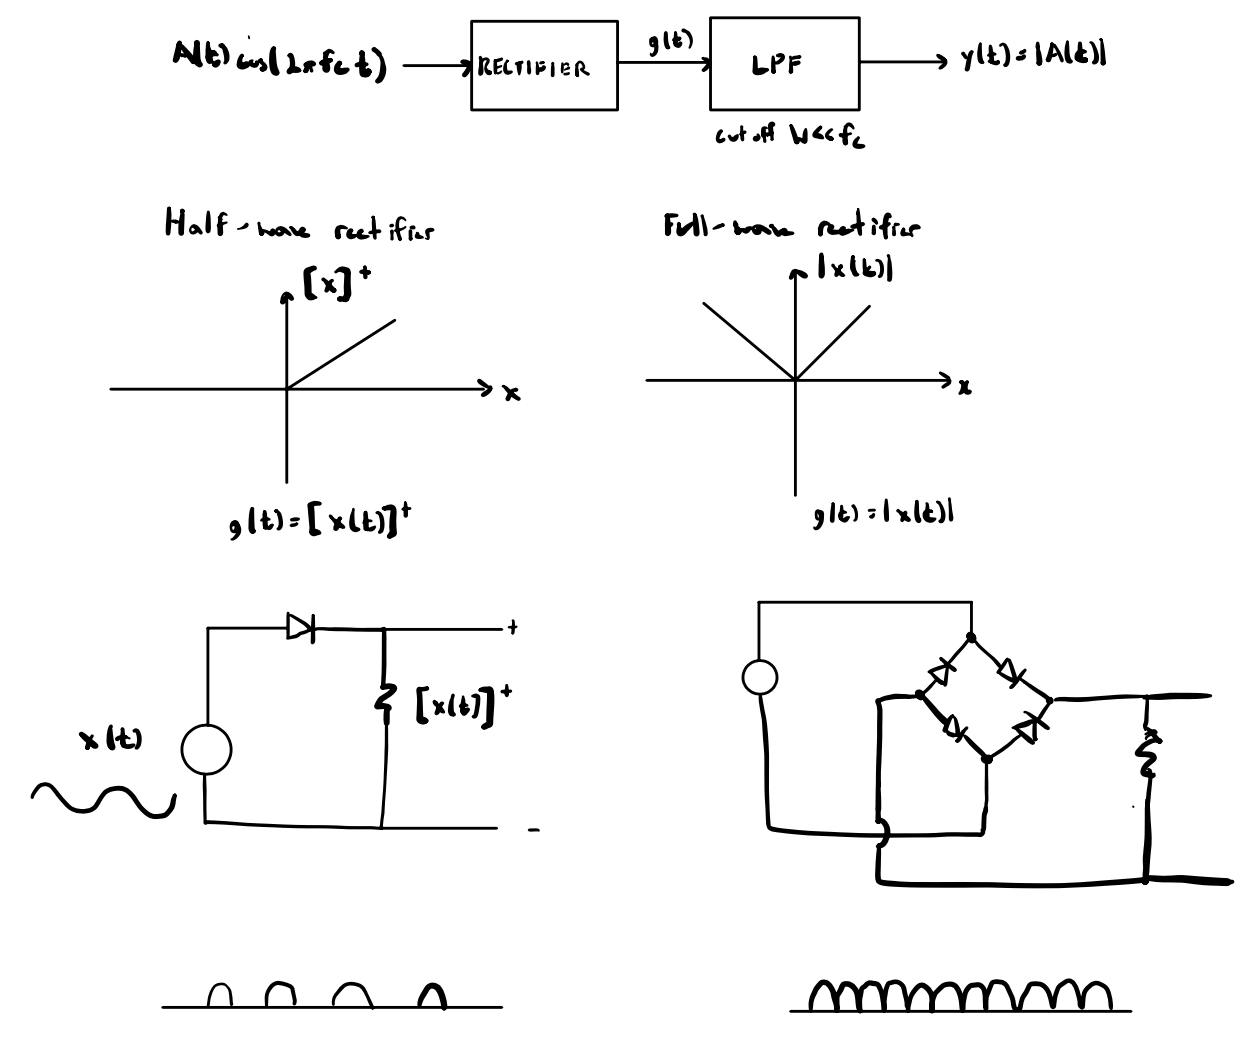 A(t) cos(2πfc t)
RECTIFIER
g(t)
LPF
y(t) = |A(t)|
cutoff W<<fc
Half-wave rectifier
[x]⁺
x
g(t) = [x(t)]⁺
Full-wave rectifier
|x(t)|
x
g(t) = |x(t)|
x(t)
+
[x(t)]⁺
-